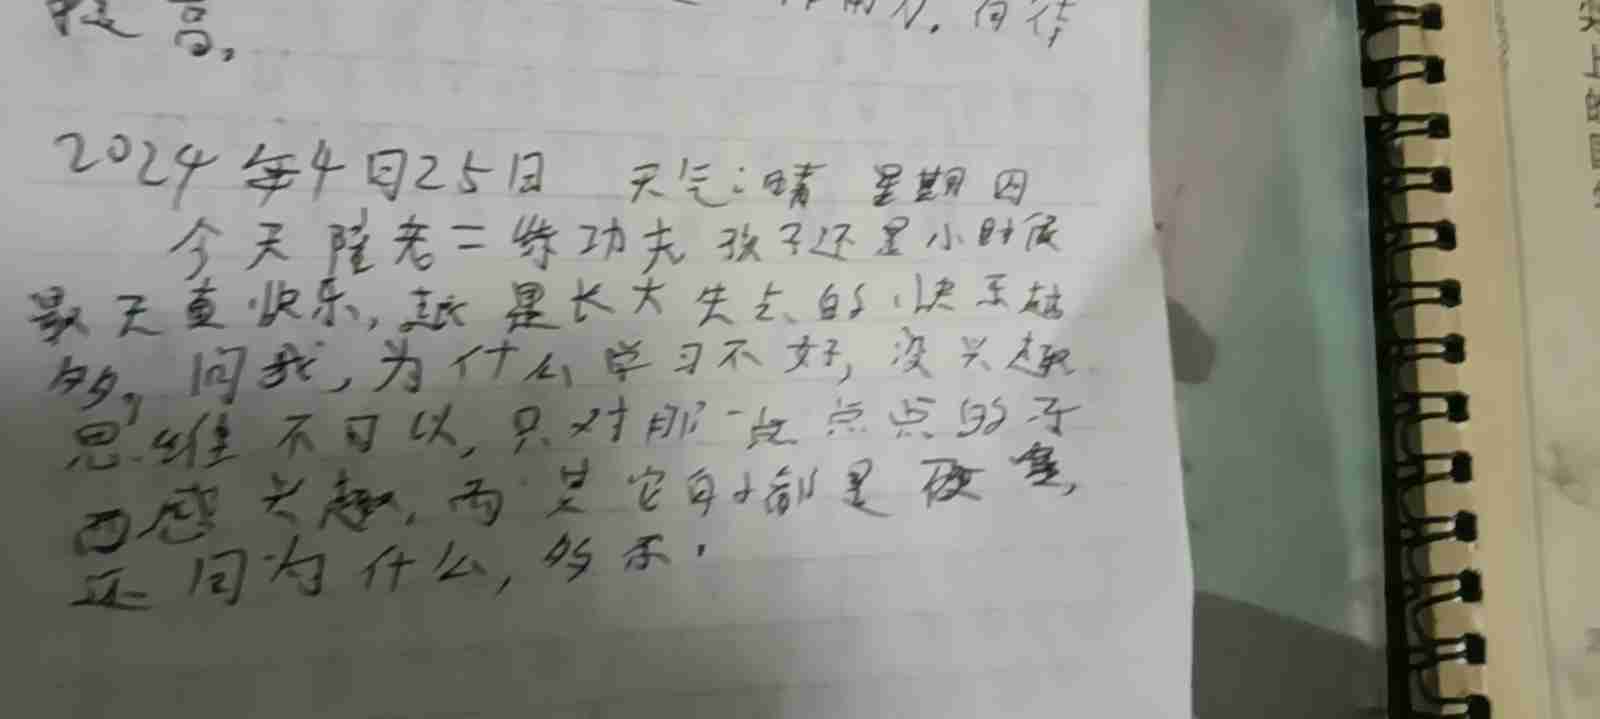 提高。 有待
2024年4月25日 天气:晴 星期四
今天陪老二练功夫孩子还是小时候
最天真快乐,越是长大失去的快乐越
多,问我,为什么学习不好,没兴趣
思维不可以,只对那一点点点的东
西感兴趣,而其它的都是硬塞,
还问为什么,多乐.